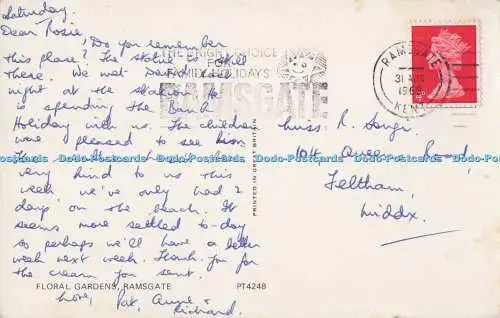 Saturday.
Dear Rosie,
Do you remember
this place? The statue is still
there. We met David last
night at the station. He
is spending the Bank
Holiday with us. The children
were pleased to see him.
The
very kind to us this
week we've only had 2
days on the beach. It
seems more settled to-day
so perhaps we'll have a better
week next week. Thank you for
the cream you sent.
Love, Pat, Anne &
Richard.
FLORAL GARDENS, RAMSGATE
PT4248
PRINTED IN GREAT BRITAIN
THE BRIGHT CHOICE
FOR
FAMILY HOLIDAYS
RAMSGATE
RAMSGATE
31 AUG
1968
KENT
Miss. R.
104 Queen Road,
Feltham,
Middx.
Dado-Postcards Dado-Postcards Dado-Postcards Dado-Postcards Dado-Postcards Dado-Postcards Dado-Postcards